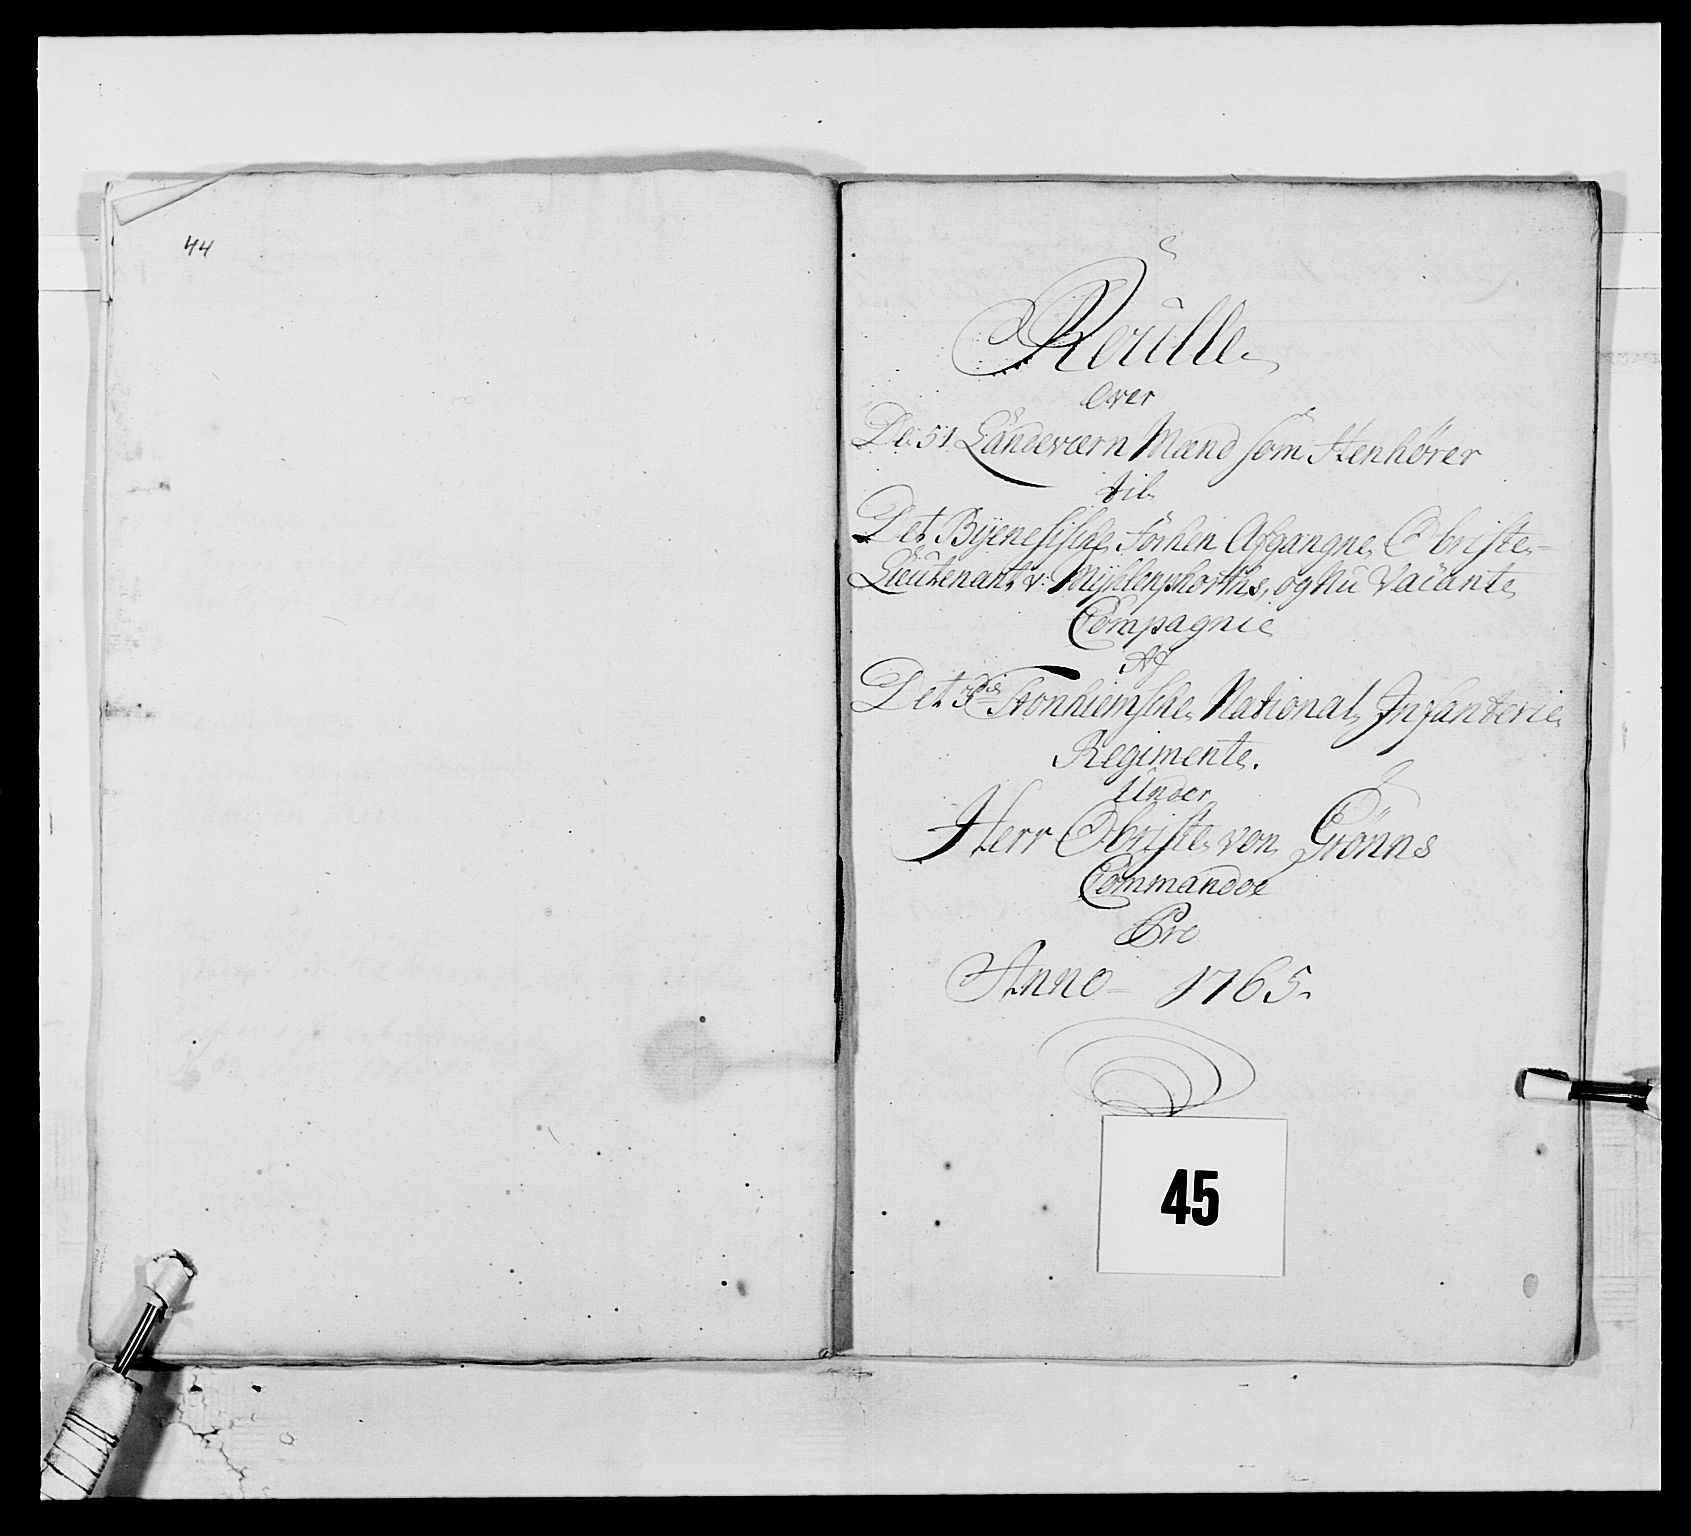 44
Roulle
Over
De 51 Landeværn Mænd som Henhører
til
Det Byenesische forhen Afgangne Obriste-
Lieutenant v: Mÿhlenphorths, og Nu Vacante
Compagnie
Af
Det 3die Tronhiemsche National Infanterie
Regimente.
Under
Herr Obriste von Grønns
Commandoe
Pro
Anno 1765.
45